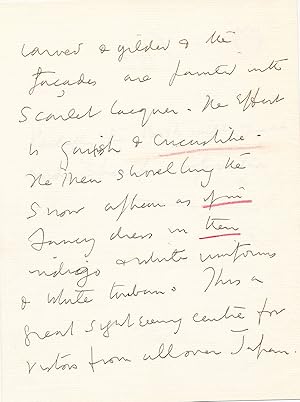 carved & gilded & the
façades are painted with
Scarlet lacquer. The Effect
is garish & circuslike.
The men shovelling the
snow appear as if in
fancy dress in their
indigo & white uniforms
& white turbans. This a
great sightseeing centre for
visitors from all over Japan.